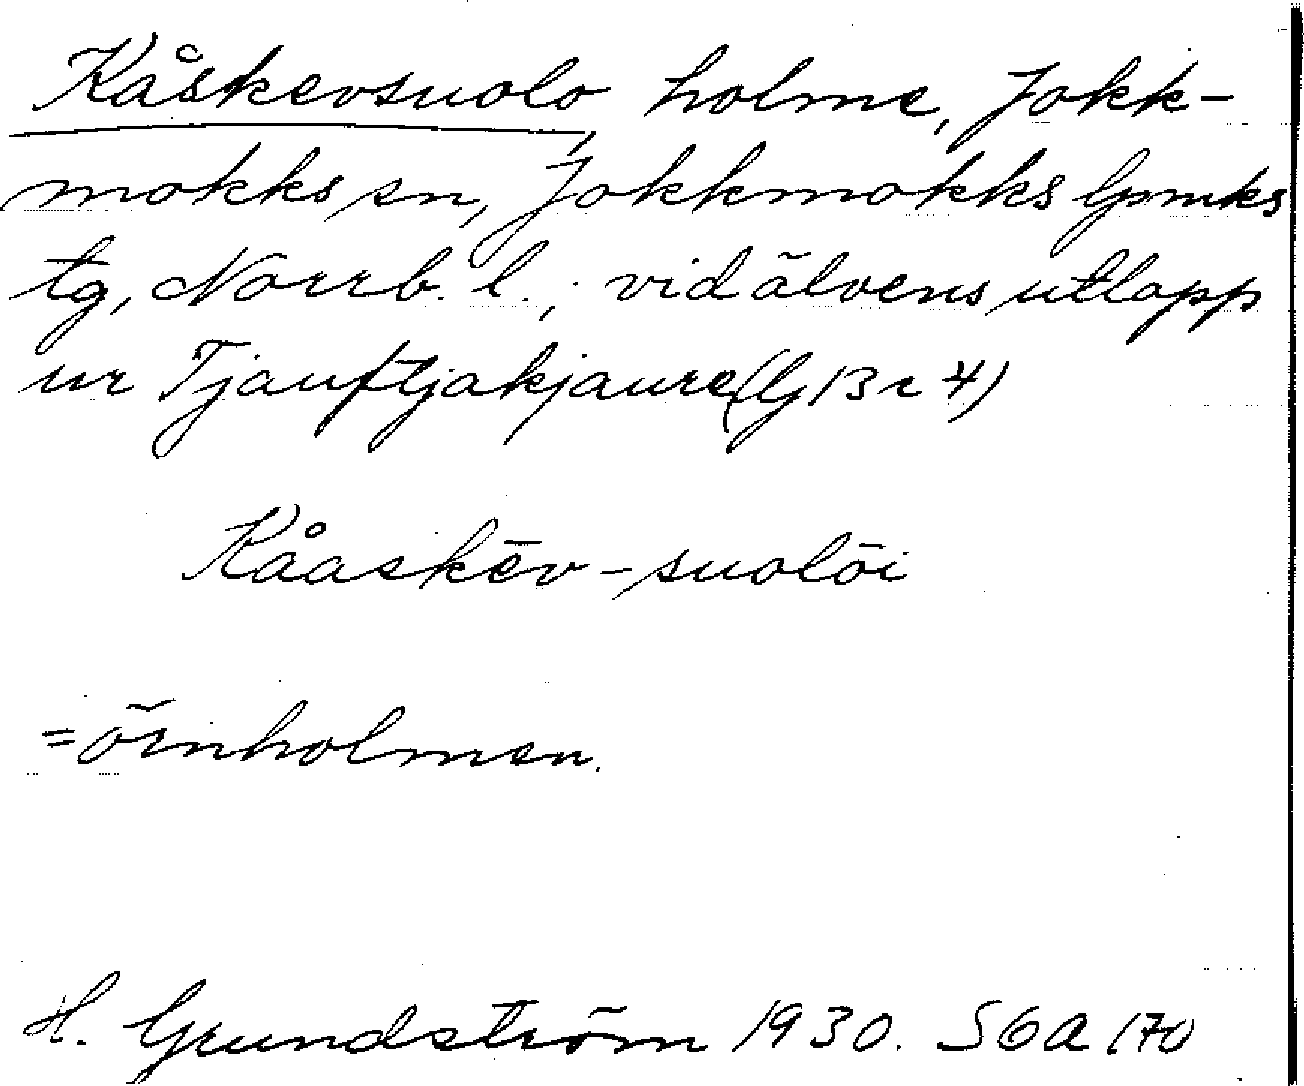 Kåskevsuolo, holme, Jokk-
mokks sn, Jokkmokks lpmks
tg, Norrb. l.; vid älvens utlopp
ur Tjauftjakjaure
Kåaskēv-suolōi
=örnholmen.
H. Grundström 1930. S6a 170